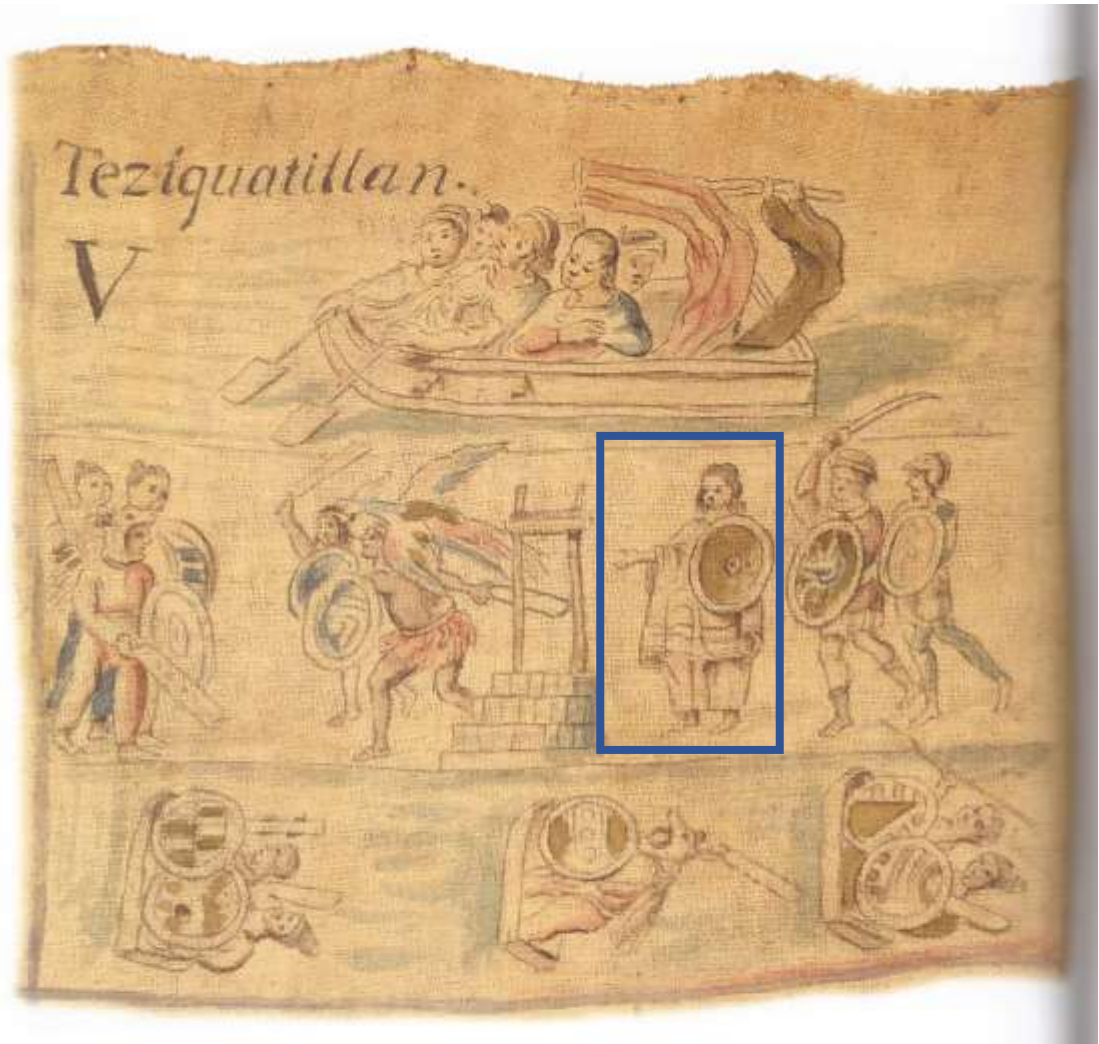 Teziquatillan..
V